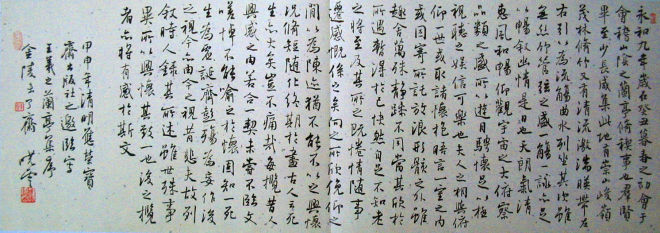 永和九年歲在癸丑暮春之初會于
會稽山陰之蘭亭脩禊事也羣賢
畢至少長咸集此地有崇山峻嶺
茂林脩竹又有清流激湍映帶左
右引以為流觴曲水列坐其次雖
無絲竹管弦之盛一觴一詠亦足
以暢敘幽情是日也天朗氣清
惠風和暢仰觀宇宙之大俯察
品類之盛所以遊目騁懷足以極
視聽之娛信可樂也夫人之相與俯
仰一世或取諸懷抱晤言一室之內
或因寄所託放浪形骸之外雖
趣舍萬殊靜躁不同當其欣於
所遇暫得於己快然自足不知老
之將至及其所之既倦情隨事
遷感慨係之矣向之所欣俛仰之
間以為陳迹猶不能不以之興懷
況脩短隨化終期於盡古人云死
生亦大矣豈不痛哉每攬昔人
興感之由若合一契未嘗不臨文
嗟悼不能喻之於懷固知一死
生為虛誕齊彭殤為妄作後
之視今亦由今之視昔悲夫故列
敘時人錄其所述雖世殊事
異所以興懷其致一也後之攬
者亦將有感於斯文
甲申年清明應榮寶
齋出版社之邀臨寫
王羲之蘭亭集序
金陵了齋